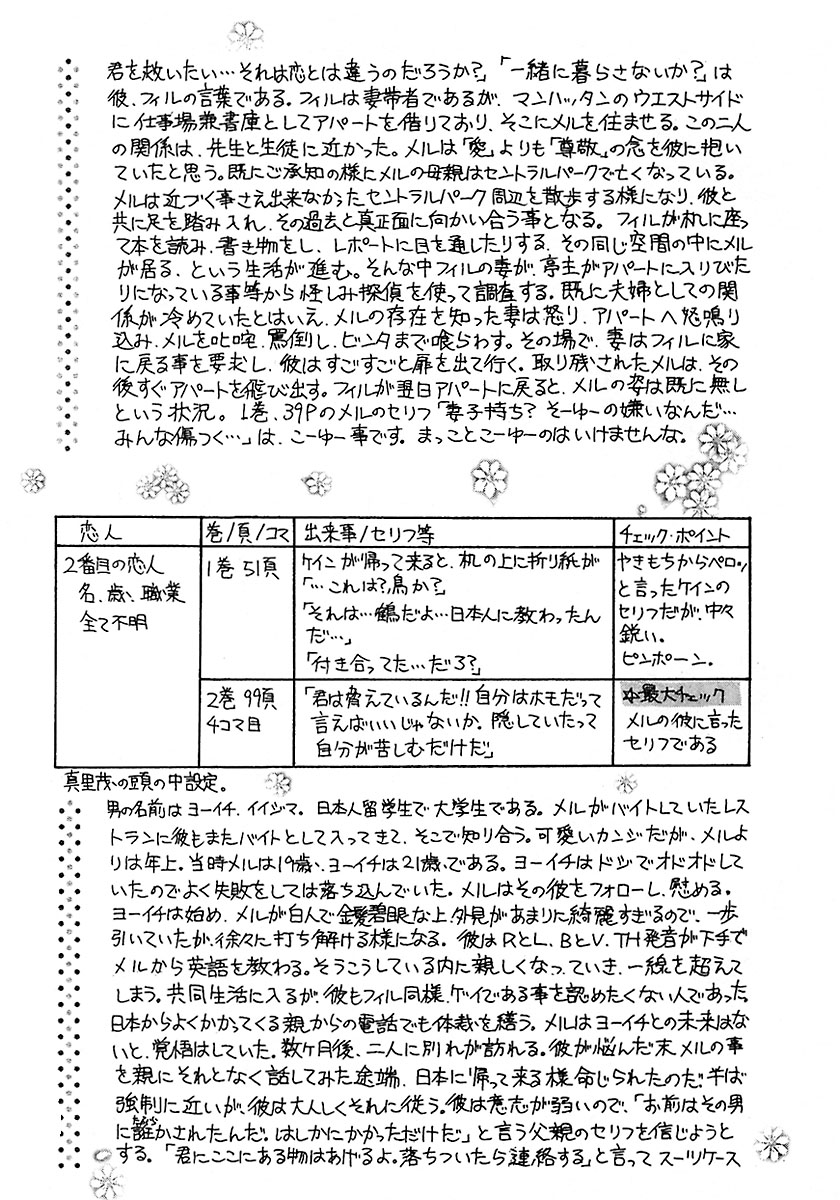 君を救いたい…それは恋とは違うのだろうか?」「一緒に暮らさないか?」は
彼、フィルの言葉である。フィルは妻帯者であるが、マンハッタンのウエストサイド
に仕事場兼書庫としてアパートを借りており、そこにメルを住ませる。この二人
の関係は、先生と生徒に近かった。メルは「愛」よりも「尊敬」の念を彼に抱い
ていたと思う。既にご承知の様にメルの母親はセントラルパークで亡くなっている。
メルは近づく事さえ出来なかったセントラルパーク周辺を散歩する様になり、彼と
共に足を踏み入れ、その過去と真正面に向かい合う事となる。フィルが机に座っ
て本を読み、書き物をし、レポートに目を通したりする、その同じ空間の中にメル
が居る、という生活が進む。そんな中フィルの妻が、亭主がアパートに入りびた
りになっている事等から怪しみ探偵を使って調査する。既に夫婦としての関
係が冷めていたとはいえ、メルの存在を知った妻は怒り、アパートへ怒鳴り
込み、メルを叱咤、罵倒し、ビンタまで喰らわす。その場で、妻はフィルに家
に戻る事を要求し、彼はすごすごと扉を出て行く。取り残されたメルは、その
後すぐアパートを飛び出す。フィルが翌日アパートに戻ると、メルの姿は既に無し
という状況。1巻、39Pのメルのセリフ「妻子持ち? そーゆーの嫌いなんだ…
みんな傷つく…」は、こーゆー事です。まっことこーゆーのはいけませんな。
恋人 巻/頁/コマ 出来事/セリフ等 チェック・ポイント
2番目の恋人
名、歳、職業
全て不明
1巻 51頁
ケインが帰って来ると、机の上に折り紙が
「…これは?鳥か?」
「それは…鶴だよ…日本人に教わったん
だ…」
「付き合ってた…だろ?」
やきもちからペロッ
と言ったケインの
セリフだが、中々
鋭い。
ピンポーン。
2巻 99頁
4コマ目
「君は脅えているんだ!!自分はホモだって
言えばいいじゃないか。隠していたって
自分が苦しむだけだ」
☆最大チェック
メルの彼に言った
セリフである
真里茂の頭の中設定。
男の名前はヨーイチ、イイジマ。日本人留学生で大学生である。メルがバイトしていたレス
トランに彼もまたバイトとして入ってきて、そこで知り合う。可愛いカンジだが、メルよ
りは年上。当時メルは19歳、ヨーイチは21歳である。ヨーイチはドジでオドオドして
いたのでよく失敗をしては落ち込んでいた。メルはその彼をフォローし、慰める。
ヨーイチは始め、メルが白人で金髪碧眼な上、外見があまりに綺麗すぎるので、一歩
引いていたが、徐々に打ち解ける様になる。彼はRとL、BとV、TH発音が下手で
メルから英語を教わる。そうこうしている内に親しくなっていき、一線を超えて
しまう。共同生活に入るが、彼もフィル同様、ゲイである事を認めたくない人であった。
日本からよくかかってくる親からの電話でも体裁を繕う。メルはヨーイチとの未来はな
いと、覚悟はしていた。数ヶ月後、二人に別れが訪れる。彼が悩んだ末メルの事
を親にそれとなく話してみた途端、日本に帰って来る様命じられたのだ。半ば
強制に近いが、彼は大人しくそれに従う。彼は意志が弱いので、「お前はその男
に誑かされたんだ。はしかにかかっただけだ」と言う父親のセリフを信じようと
する。「君にここにある物はあげるよ。落ちついたら連絡する」と言ってスーツケース